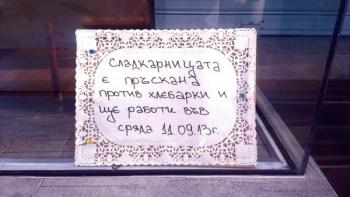 сладкарницата
е пръскана
против хлебарки и
ще работи във
сряда 11.09.13г.